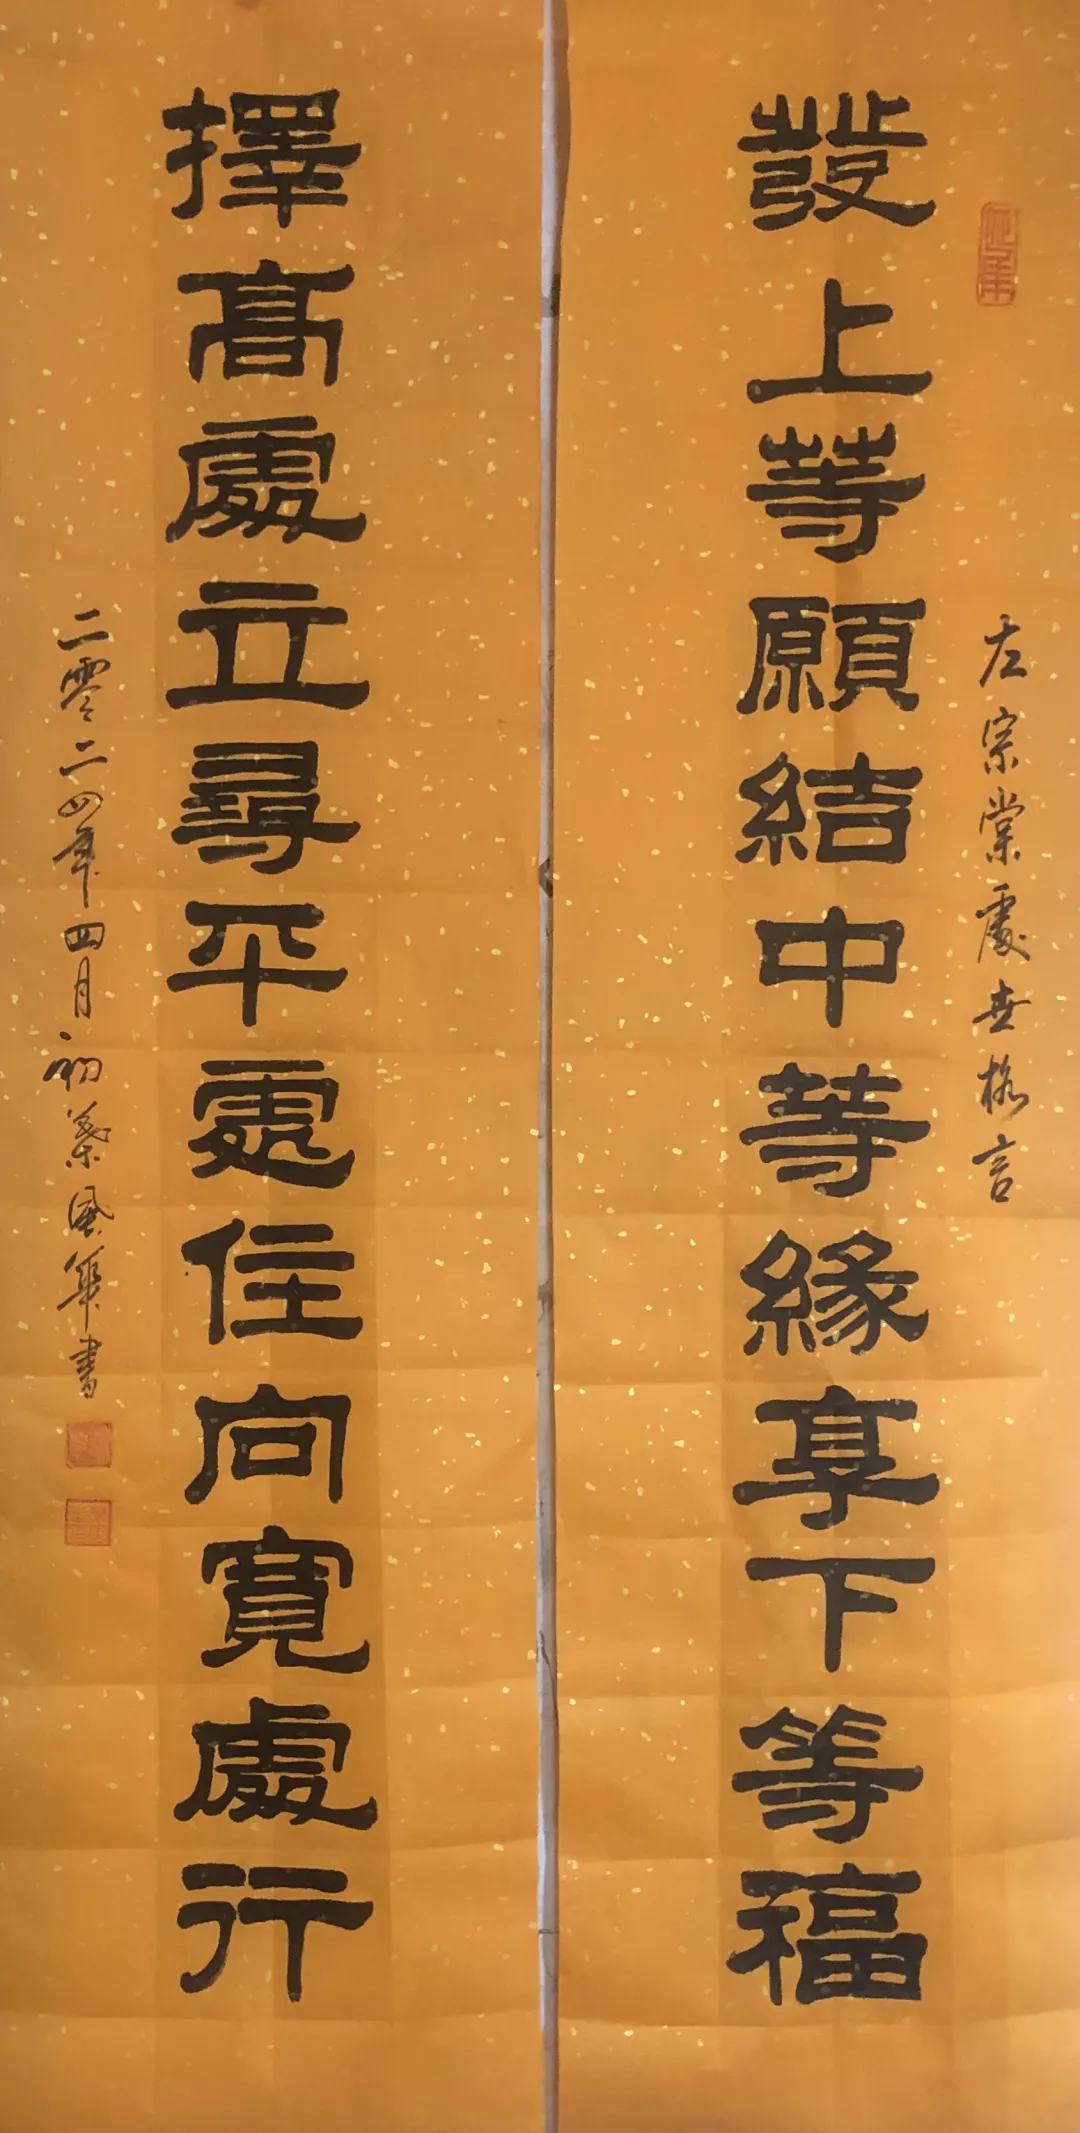 左宗棠處世格言
發上等願結中等緣享下等福
擇高處立尋平處住向寬處行
二零二四年四月初葉風華書